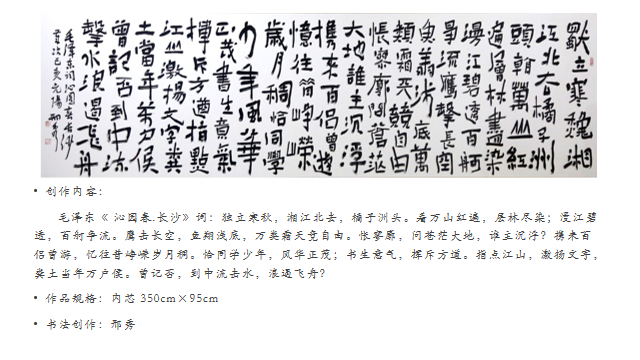 獨立寒秋湘
江北去橘子洲
頭看萬山紅
遍層林盡染
漫江碧透百舸
爭流鷹擊長空
魚翔淺底萬
類霜天競自由
悵寥廓問蒼茫
大地誰主沉浮
攜來百侶曾遊
憶往昔崢嶸
歲月稠恰同學
少年風華
正茂書生意氣
揮斥方遒指點
江山激揚文字糞
土當年萬户侯
曾記否到中流
擊水浪遏飛舟
毛澤東詞沁園春長沙
• 创作内容:
毛泽东《 沁园春.长沙》词: 独立寒秋, 湘江北去, 橘子洲头。看万山红遍, 层林尽染; 漫江碧
透, 百舸争流。鹰击长空, 鱼翔浅底, 万类霜天竞自由。怅寥廓, 问苍茫大地, 谁主沉浮? 携来百
侣曾游, 忆往昔峥嵘岁月稠。恰同学少年, 风华正茂; 书生意气, 挥斥方遒。指点江山, 激扬文字,
粪土当年万户侯。曾记否, 到中流击水, 浪遏飞舟?
• 作品规格: 内芯 350cm×95cm
• 书法创作: 邢秀